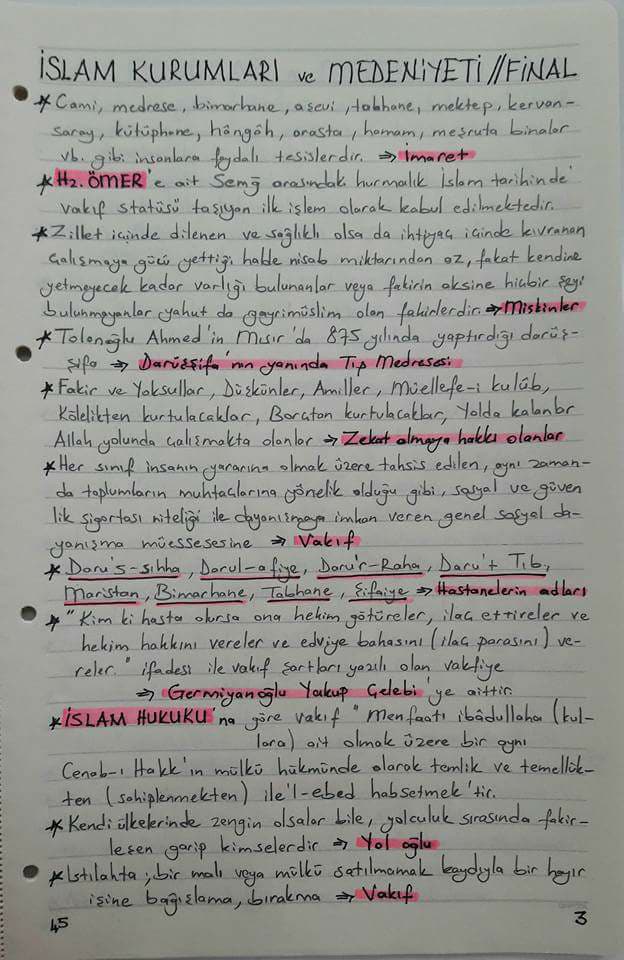 İSLAM KURUMLARI ve MEDENİYETİ // FİNAL
* Cami, medrese, bimarhane, aşevi, tabhane, mektep, kervan-
saray, kütüphane, hângâh, arasta, hamam, meşruta binalar
vb. gibi insanlara faydalı tesislerdir. ⇒ İmaret
* Hz. ÖMER'e ait Semğ arasındaki hurmalık İslam tarihinde
vakıf statüsü taşıyan ilk işlem olarak kabul edilmektedir.
* Zillet içinde dilenen ve sağlıklı olsa da ihtiyaç içinde kıvranan
çalışmaya gücü yettiği halde nisab miktarından az, fakat kendine
yetmeyecek kadar varlığı bulunanlar veya fakirin aksine hiçbir şeyi
bulunmayanlar yahut da gayrimüslim olan fakirlerdir. ⇒ Miskinler
* Tolonoğlu Ahmed'in Mısır'da 875 yılında yaptırdığı darüş-
şifa ⇒ Darüşşifa'nın yanında Tıp Medresesi
* Fakir ve Yoksullar, Düşkünler, Amiller, Müellefe-i kulûb,
Kölelikten kurtulacaklar, Borctan kurtulacaklar, Yolda kalanlar
Allah yolunda çalışmakta olanlar ⇒ Zekat almaya hakkı olanlar
* Her sınıf insanın yararına olmak üzere tahsis edilen, aynı zaman-
da toplumların muhtaçlarına yönelik olduğu gibi, sosyal ve güven
lik sigortası niteliği ile dayanışmaya imkan veren genel sosyal da-
yanışma müessesesine ⇒ Vakıf
* Daru's-sıhha, Darul-afiye, Daru'r-Raha, Daru't Tıb,
Maristan, Bimarhane, Tabhane, Şifaiye ⇒ Hastanelerin adları
* "Kim ki hasta olursa ona hekim götüreler, ilaç ettireler ve
hekim hakkını vereler ve edviye bahasını (ilaç parasını) ve-
reler." ifadesi ile vakıf şartları yazılı olan vakfiye
⇒ Germiyanoğlu Yakup Çelebi'ye aittir.
* İSLAM HUKUKU'na göre vakıf "Menfaatı ibâdullaha (kul-
lara) ait olmak üzere bir aynı
Cenab-ı Hakk'ın mülkü hükmünde olarak temlik ve temellük-
ten (sahiplenmekten) ile'l-ebed habsetmek'tir.
* Kendi ülkelerinde zengin olsalar bile, yolculuk sırasında fakir-
leşen garip kimselerdir ⇒ Yol oğlu
* Istılahta; bir malı veya mülkü satılmamak kaydıyla bir hayır
işine bağışlama, bırakma ⇒ Vakıf
45 3